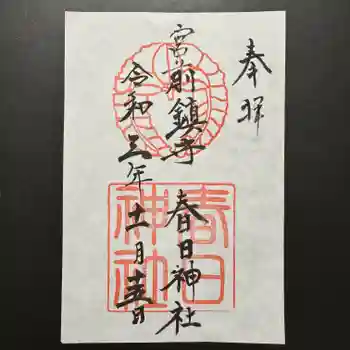 奉拝
宮前鎮守
春日神社
令和三年十一月十五日
春日神社